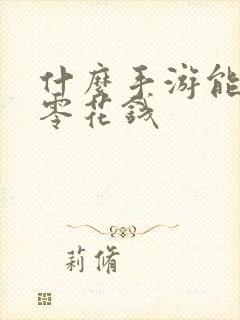 什麼手游能
零花錢
莉脩